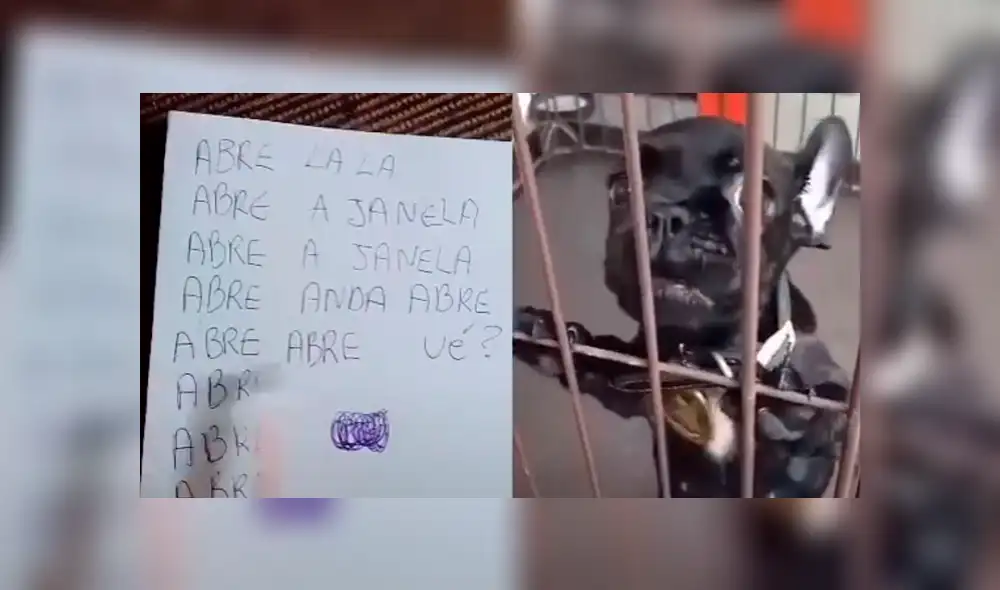 ABRE LA LA
ABRE A JANELA
ABRE A JANELA
ABRE ANDA ABRE
ABRE ABRE Vé?